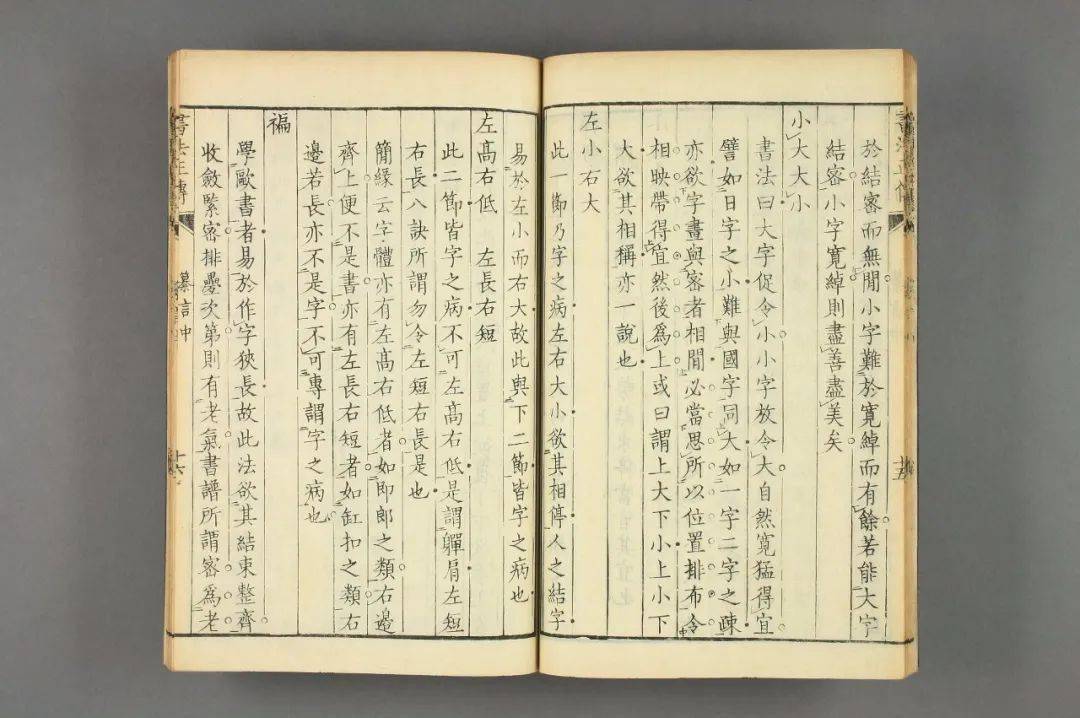 於結密而無閒小字難於寬綽而有餘若能大字
結密小字寬綽則盡善盡美矣
小大大小
書法曰大字促令小小字放令大自然寬猛得宜
譬如日字之小難與國字同大如一字二字之疎
亦欲字畫與密者相閒必當思所以位置排布令
相映帶得宜然後為上或曰謂上大下小上小下
大欲其相稱亦一說也
左小右大
此一節乃字之病左右大小欲其相停人之結字
易於左小而右大故此與下二節皆字之病也
左高右低 左長右短
此二節皆字之病不可左高右低是謂軃肩左短
右長八訣所謂勿令左短右長是也
簡緣云字體亦有左高右低者如即郎之類右邊
齊上便不是書亦有左長右短者如缸扣之類右
邊若長亦不是字不可專謂字之病也
褊
學歐書者易於作字狹長故此法欲其結束整齊
收斂緊密排疊次第則有老氣書譜所謂密為老
書法正傳
纂言中
十六
書法正傳
十五